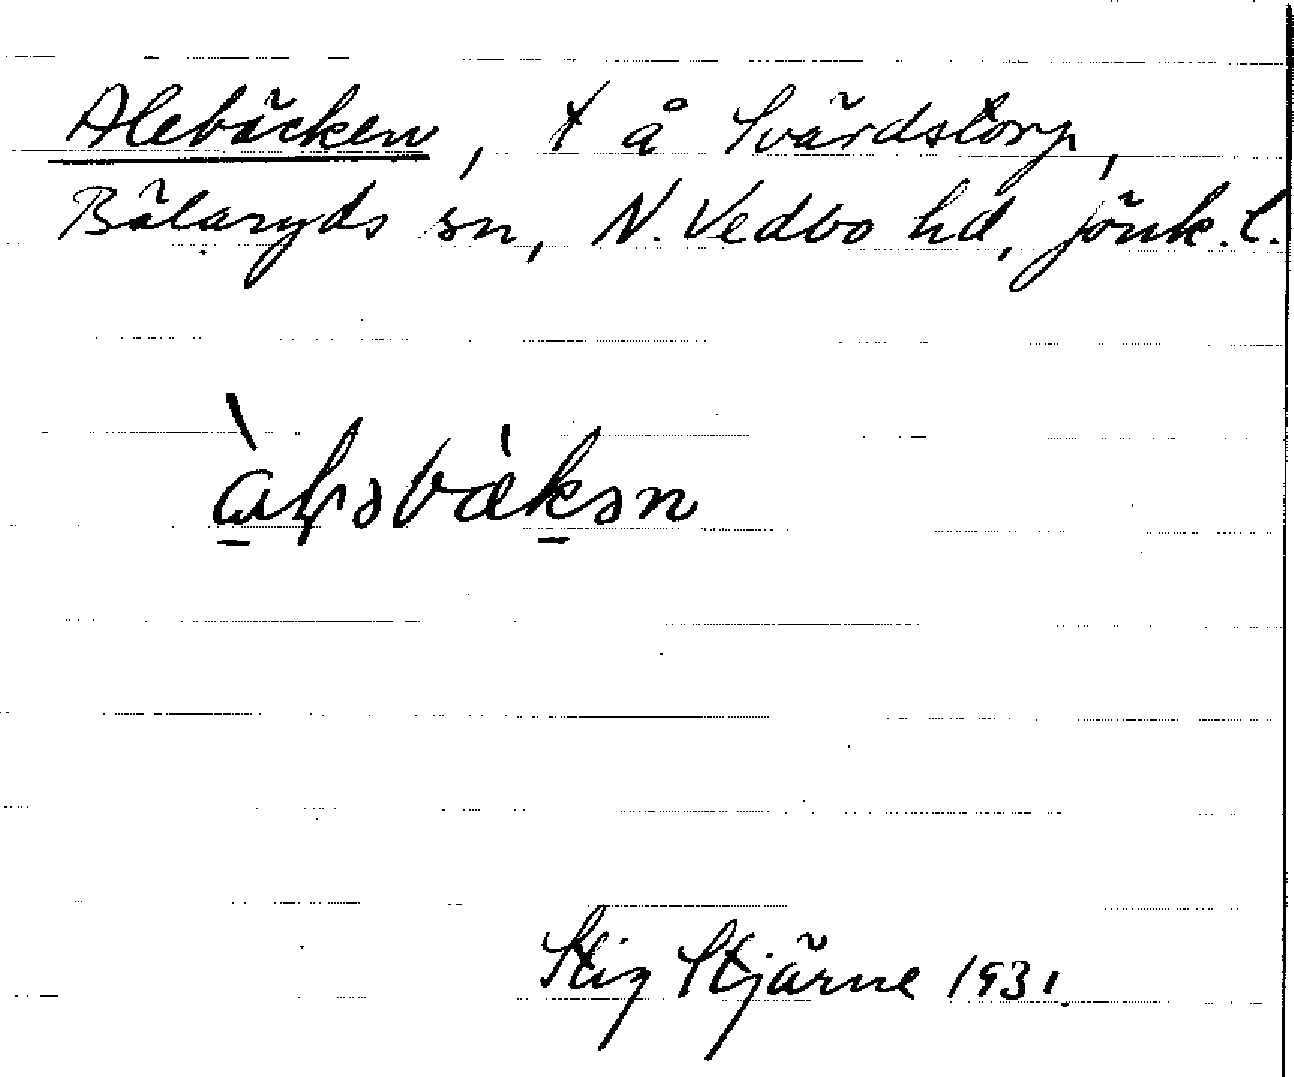 Alebäcken, t å Svärdstorp,
Bälaryds sn, N. Vedbo hd, Jönk. l.
Stig Stjärne 1931.